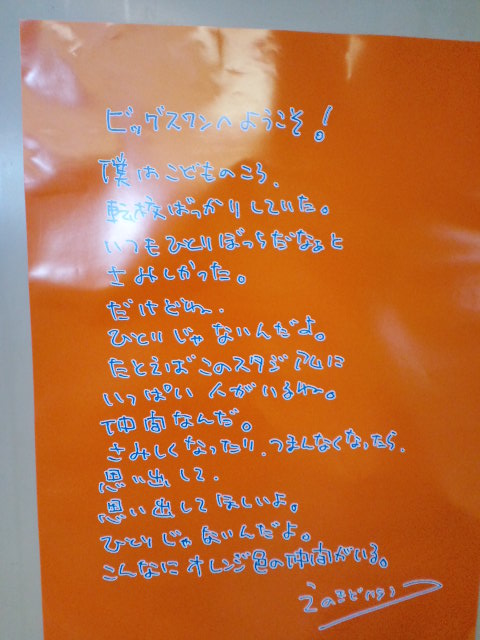 ビッグスワンへようこそ!
僕はこどものころ、
転校ばっかりしていた。
いつもひとりぼっちだなぁと
さみしかった。
だけどね、
ひとりじゃないんだよ。
たとえばこのスタジアムに
いっぱい人がいるね。
仲間なんだ。
さみしくなったり、つまんなくなったら、
思い出して、
思い出してほしいよ。
ひとりじゃないんだよ。
こんなにオレンジ色の仲間がいる。